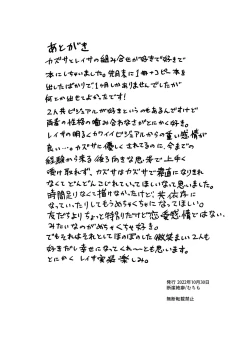 あとがき
カズサとレイサの組み合せが好きで好きで
本にしちゃいました。発表に1冊+コピー本を
出したばかりで1ヶ月しかありませんでしたが
何とか出せてよかったです!
2人共ビジュアルが好きというのもあるんですけど
両者の性格の噛み合わなさがとにかく好き。
レイサの明るくカワイイビジュアルからの重い感情が
良い…。カズサに優しくされてるのに、今までの
経験から来る後ろ向きな思考で上手く
受け取れず、カズサはカズサで素直になりきれ
なくてどんどんこじれていってほしいなって思いました。
時間足りなくて描けなかったけど、共依存に
なっていたりしてもうめちゃくちゃになってほしい。
友だちよりちょっと特別だけど恋愛感情ではない、
みたいなのがめちゃくちゃ好き。
でもそれはそれとしてほのぼのした微笑ましい2人も
好きだし幸せになってくれ〜とも思います。
とにかく レイサ実装 楽しみ。
発行 2022年10月30日
無断転載禁止